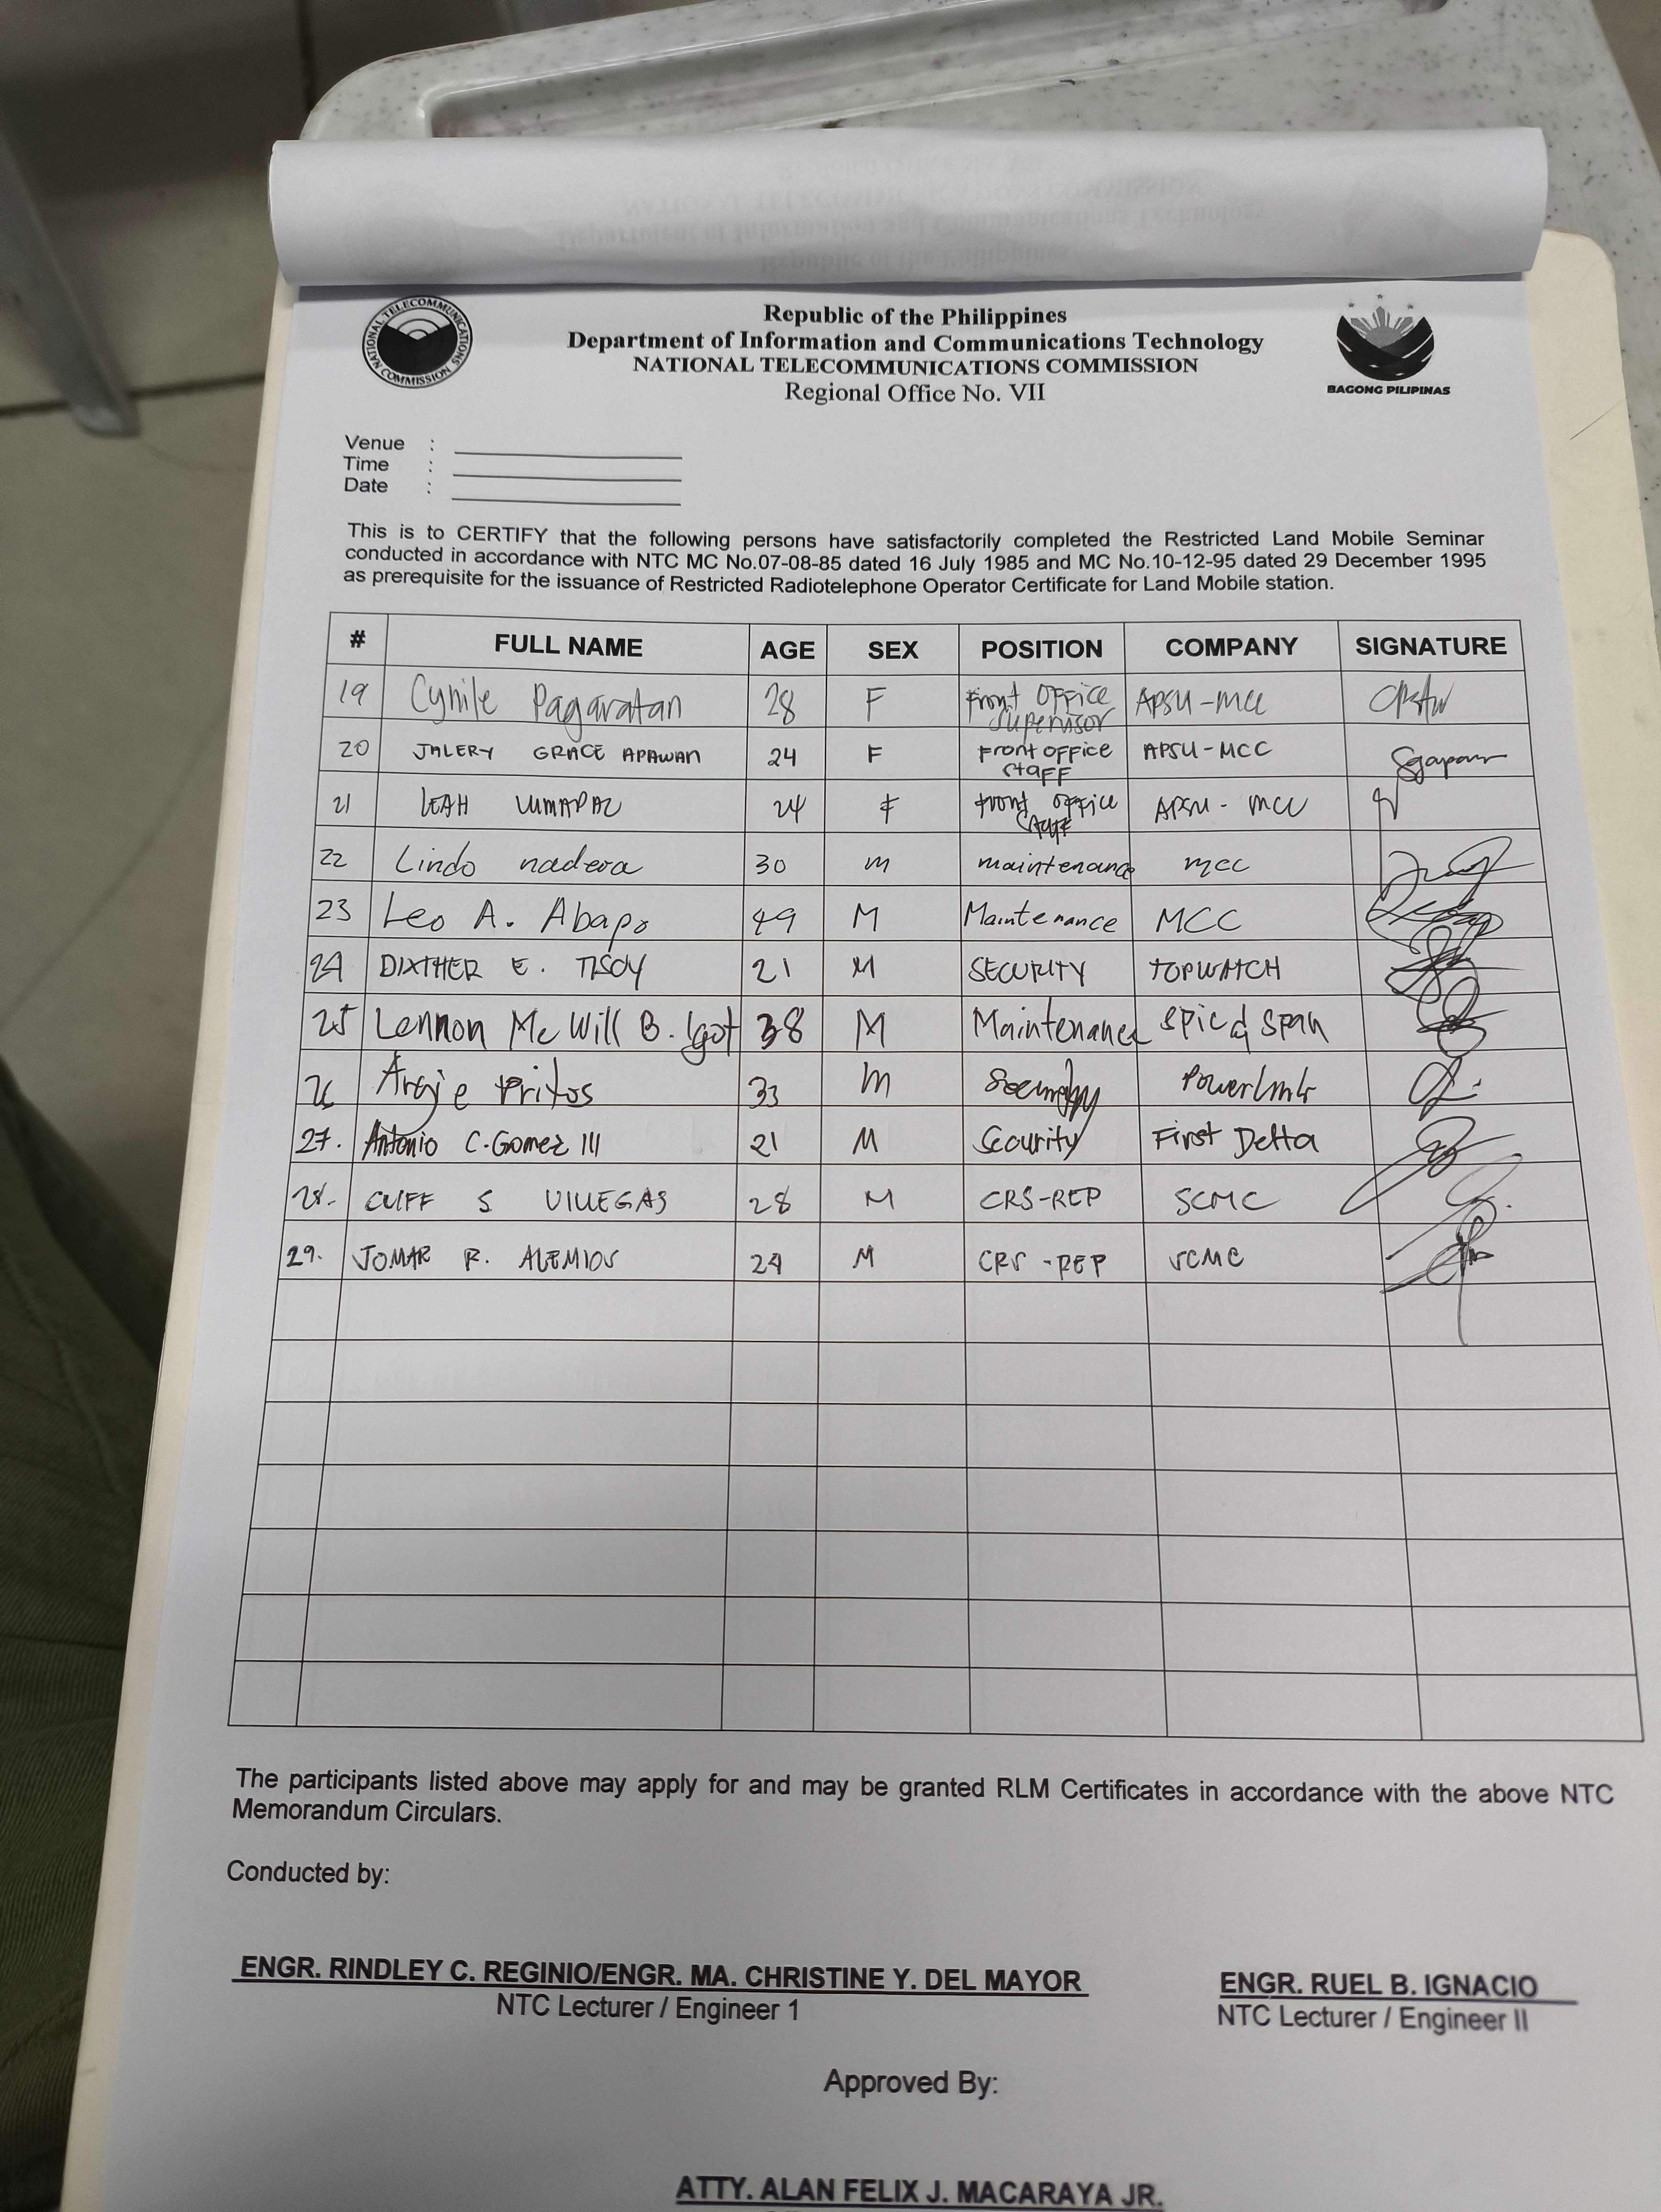 Republic of the Philippines
Department of Information and Communications Technology
NATIONAL TELECOMMUNICATIONS COMMISSION
Regional Office No. VII
NATIONAL TELECOMMUNICATIONS COMMISSION
BAGONG PILIPINAS
Venue :
Time :
Date :
This is to CERTIFY that the following persons have satisfactorily completed the Restricted Land Mobile Seminar
conducted in accordance with NTC MC No.07-08-85 dated 16 July 1985 and MC No.10-12-95 dated 29 December 1995
as prerequisite for the issuance of Restricted Radiotelephone Operator Certificate for Land Mobile station.
# FULL NAME AGE SEX POSITION COMPANY SIGNATURE
19 Cynile Pagaratan 28 F Front Office Supervisor APSU-MCC
20 JALERY GRACE APAWAN 24 F Front Office Staff APSU-MCC
21 LEAH LUMAPAC 24 F Front Office Staff APSU-MCC
22 Lindo nadera 30 M maintenance MCC
23 Leo A. Abapo 49 M Maintenance MCC
24 DIXTHER E. TISOY 21 M SECURITY TOPWATCH
25 Lennon Mc Will B. Igot 38 M Maintenance Spic & Span
26 Argie 33 M Security
27. Antonio C. Gomez III 21 M Security First Delta
28. CLIFF S VILLEGAS 28 M CRS-REP SCMC
29. JOMAR R. ALEMIOS 24 M CRS-REP SCMC
The participants listed above may apply for and may be granted RLM Certificates in accordance with the above NTC
Memorandum Circulars.
Conducted by:
ENGR. RINDLEY C. REGINIO/ENGR. MA. CHRISTINE Y. DEL MAYOR ENGR. RUEL B. IGNACIO
NTC Lecturer / Engineer 1 NTC Lecturer / Engineer II
Approved By:
ATTY. ALAN FELIX J. MACARAYA JR.